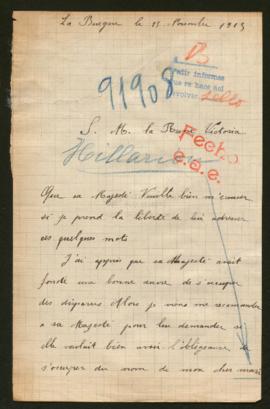 La Burgue le 13 Novembre 1915
B
Pedir informes
que se hace así
devolver
Sello
91908
S. M. la Reine Victoria
Hillarion
Fecho
e.a.e.
Que sa Majesté Veuille bien m'excuser
si je prend la liberté de lui adresser
ces quelques mots
J'ai appris que sa Majesté avait
fondé une bonne œuvre de s'occuper
des disparus. Alors je viens me recommander
a sa Majesté pour leur demander si
elle voulait bien avoir l'obligeance de
s'occuper du nom de mon cher mari